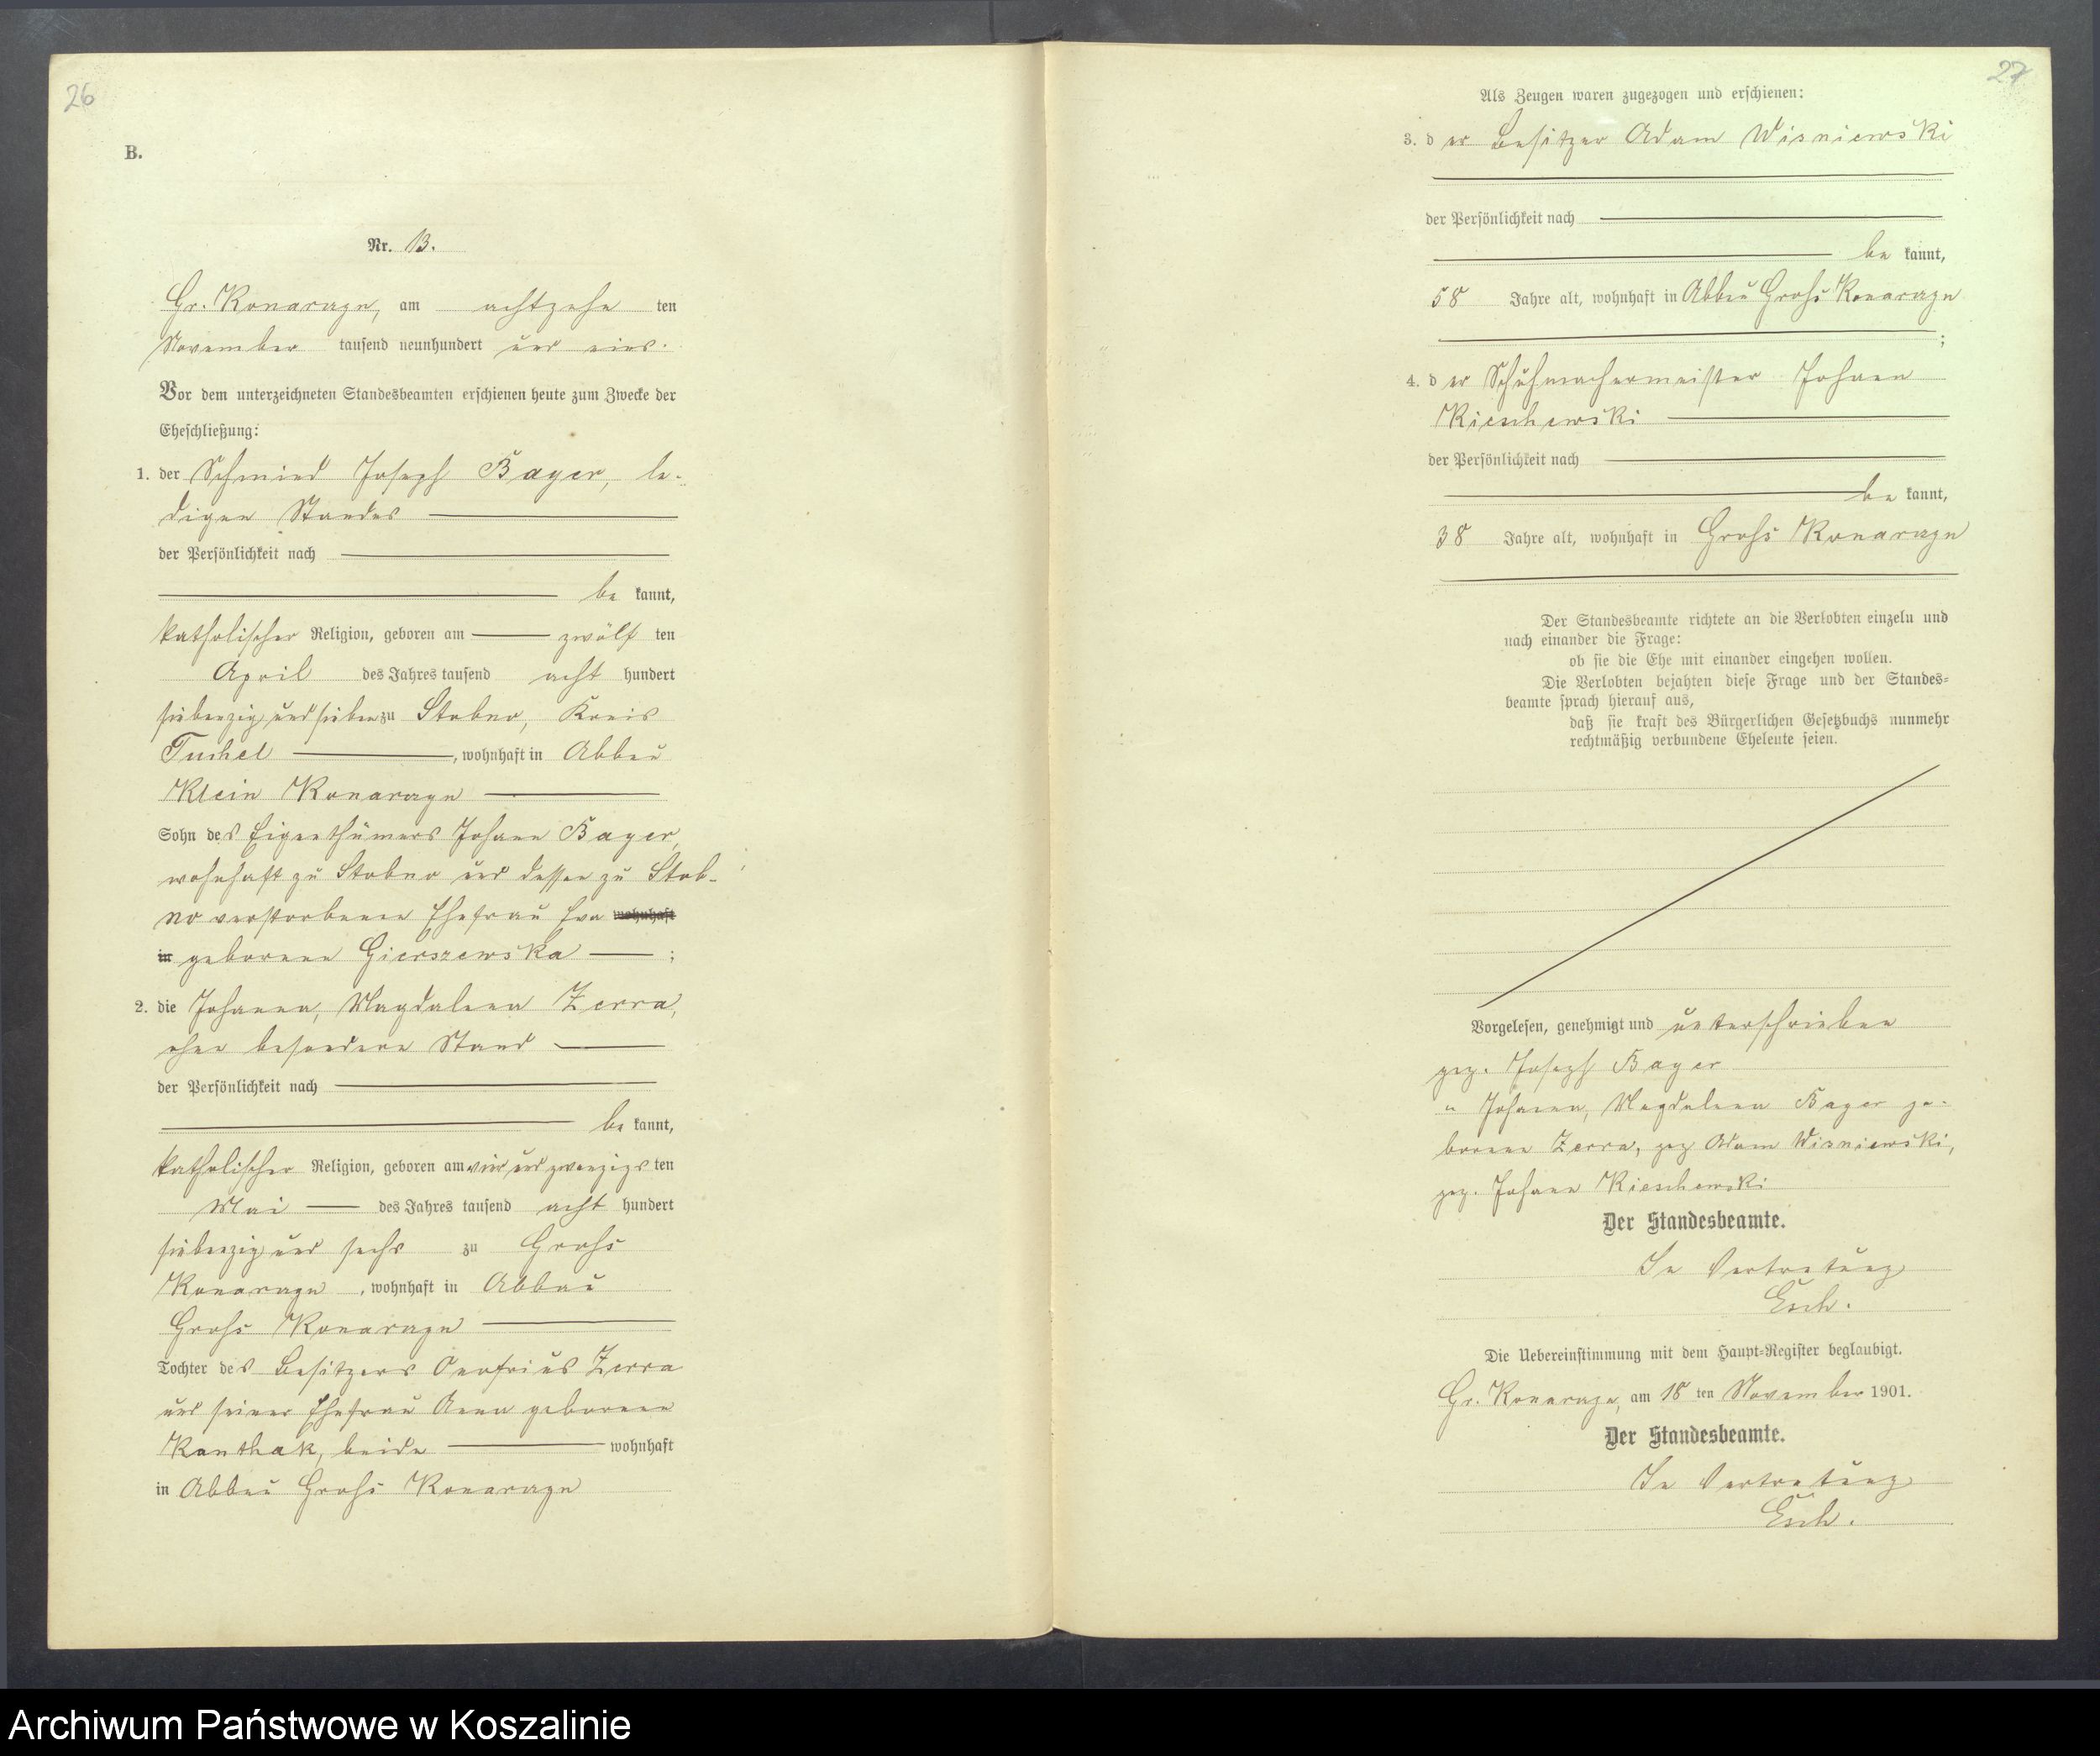 26
B.
Nr. 13.
Gr. Konarczyn, am achtzehn ten
November tausend neunhundert und eins.
Vor dem unterzeichneten Standesbeamten erschienen heute zum Zwecke der
Eheschließung:
1. der Schmied Joseph Bayer, le-
digen Standes
der Persönlichkeit nach
be kannt,
katholischer Religion, geboren am zwölf ten
April des Jahres tausend acht hundert
siebenzig und sieben zu Stobno, Kreis
Tuchel, wohnhaft in Abbau
Klein Konarczyn
Sohn des Eigenthümers Johann Bayer,
wohnhaft zu Stobno und dessen zu Stob-
no verstorbenen Ehefrau Eva wohnhaft
in geborenen Gierszewska ;
2. die Johanna, Magdalena Zerra,
ohne besonderen Stand
der Persönlichkeit nach
be kannt,
katholischer Religion, geboren am vier und zwanzigs ten
Mai des Jahres tausend acht hundert
siebenzig und sechs zu Groß
Konarczyn, wohnhaft in Abbau
Groß Konarczyn
Tochter des Besitzers Onofrius Zerra
und seiner Ehefrau Anna geborenen
Kanthak, beide wohnhaft
in Abbau Groß Konarczyn
27
Als Zeugen waren zugezogen und erschienen:
3. der Besitzer Adam Wisniewski
der Persönlichkeit nach
be kannt,
58 Jahre alt, wohnhaft in Abbau Groß Konarczyn
;
4. der Schuhmachermeister Johann
Kieschewski
der Persönlichkeit nach
be kannt,
38 Jahre alt, wohnhaft in Groß Konarczyn
Der Standesbeamte richtete an die Verlobten einzeln und
nach einander die Frage:
ob sie die Ehe mit einander eingehen wollen.
Die Verlobten bejahten diese Frage und der Standes=
beamte sprach hierauf aus,
daß sie kraft des Bürgerlichen Gesetzbuchs nunmehr
rechtmäßig verbundene Eheleute seien.
Vorgelesen, genehmigt und unterschrieben
gez. Joseph Bayer
" Johanna, Magdalena Bayer ge-
borene Zerra, gez Adam Wisniewski,
gez. Johann Kieschewski
Der Standesbeamte.
In Vertretung
Esch.
Die Uebereinstimmung mit dem Haupt=Register beglaubigt.
Gr. Konarczyn, am 18 ten November 1901.
Der Standesbeamte.
In Vertretung
Esch.
Archiwum Państwowe w Koszalinie